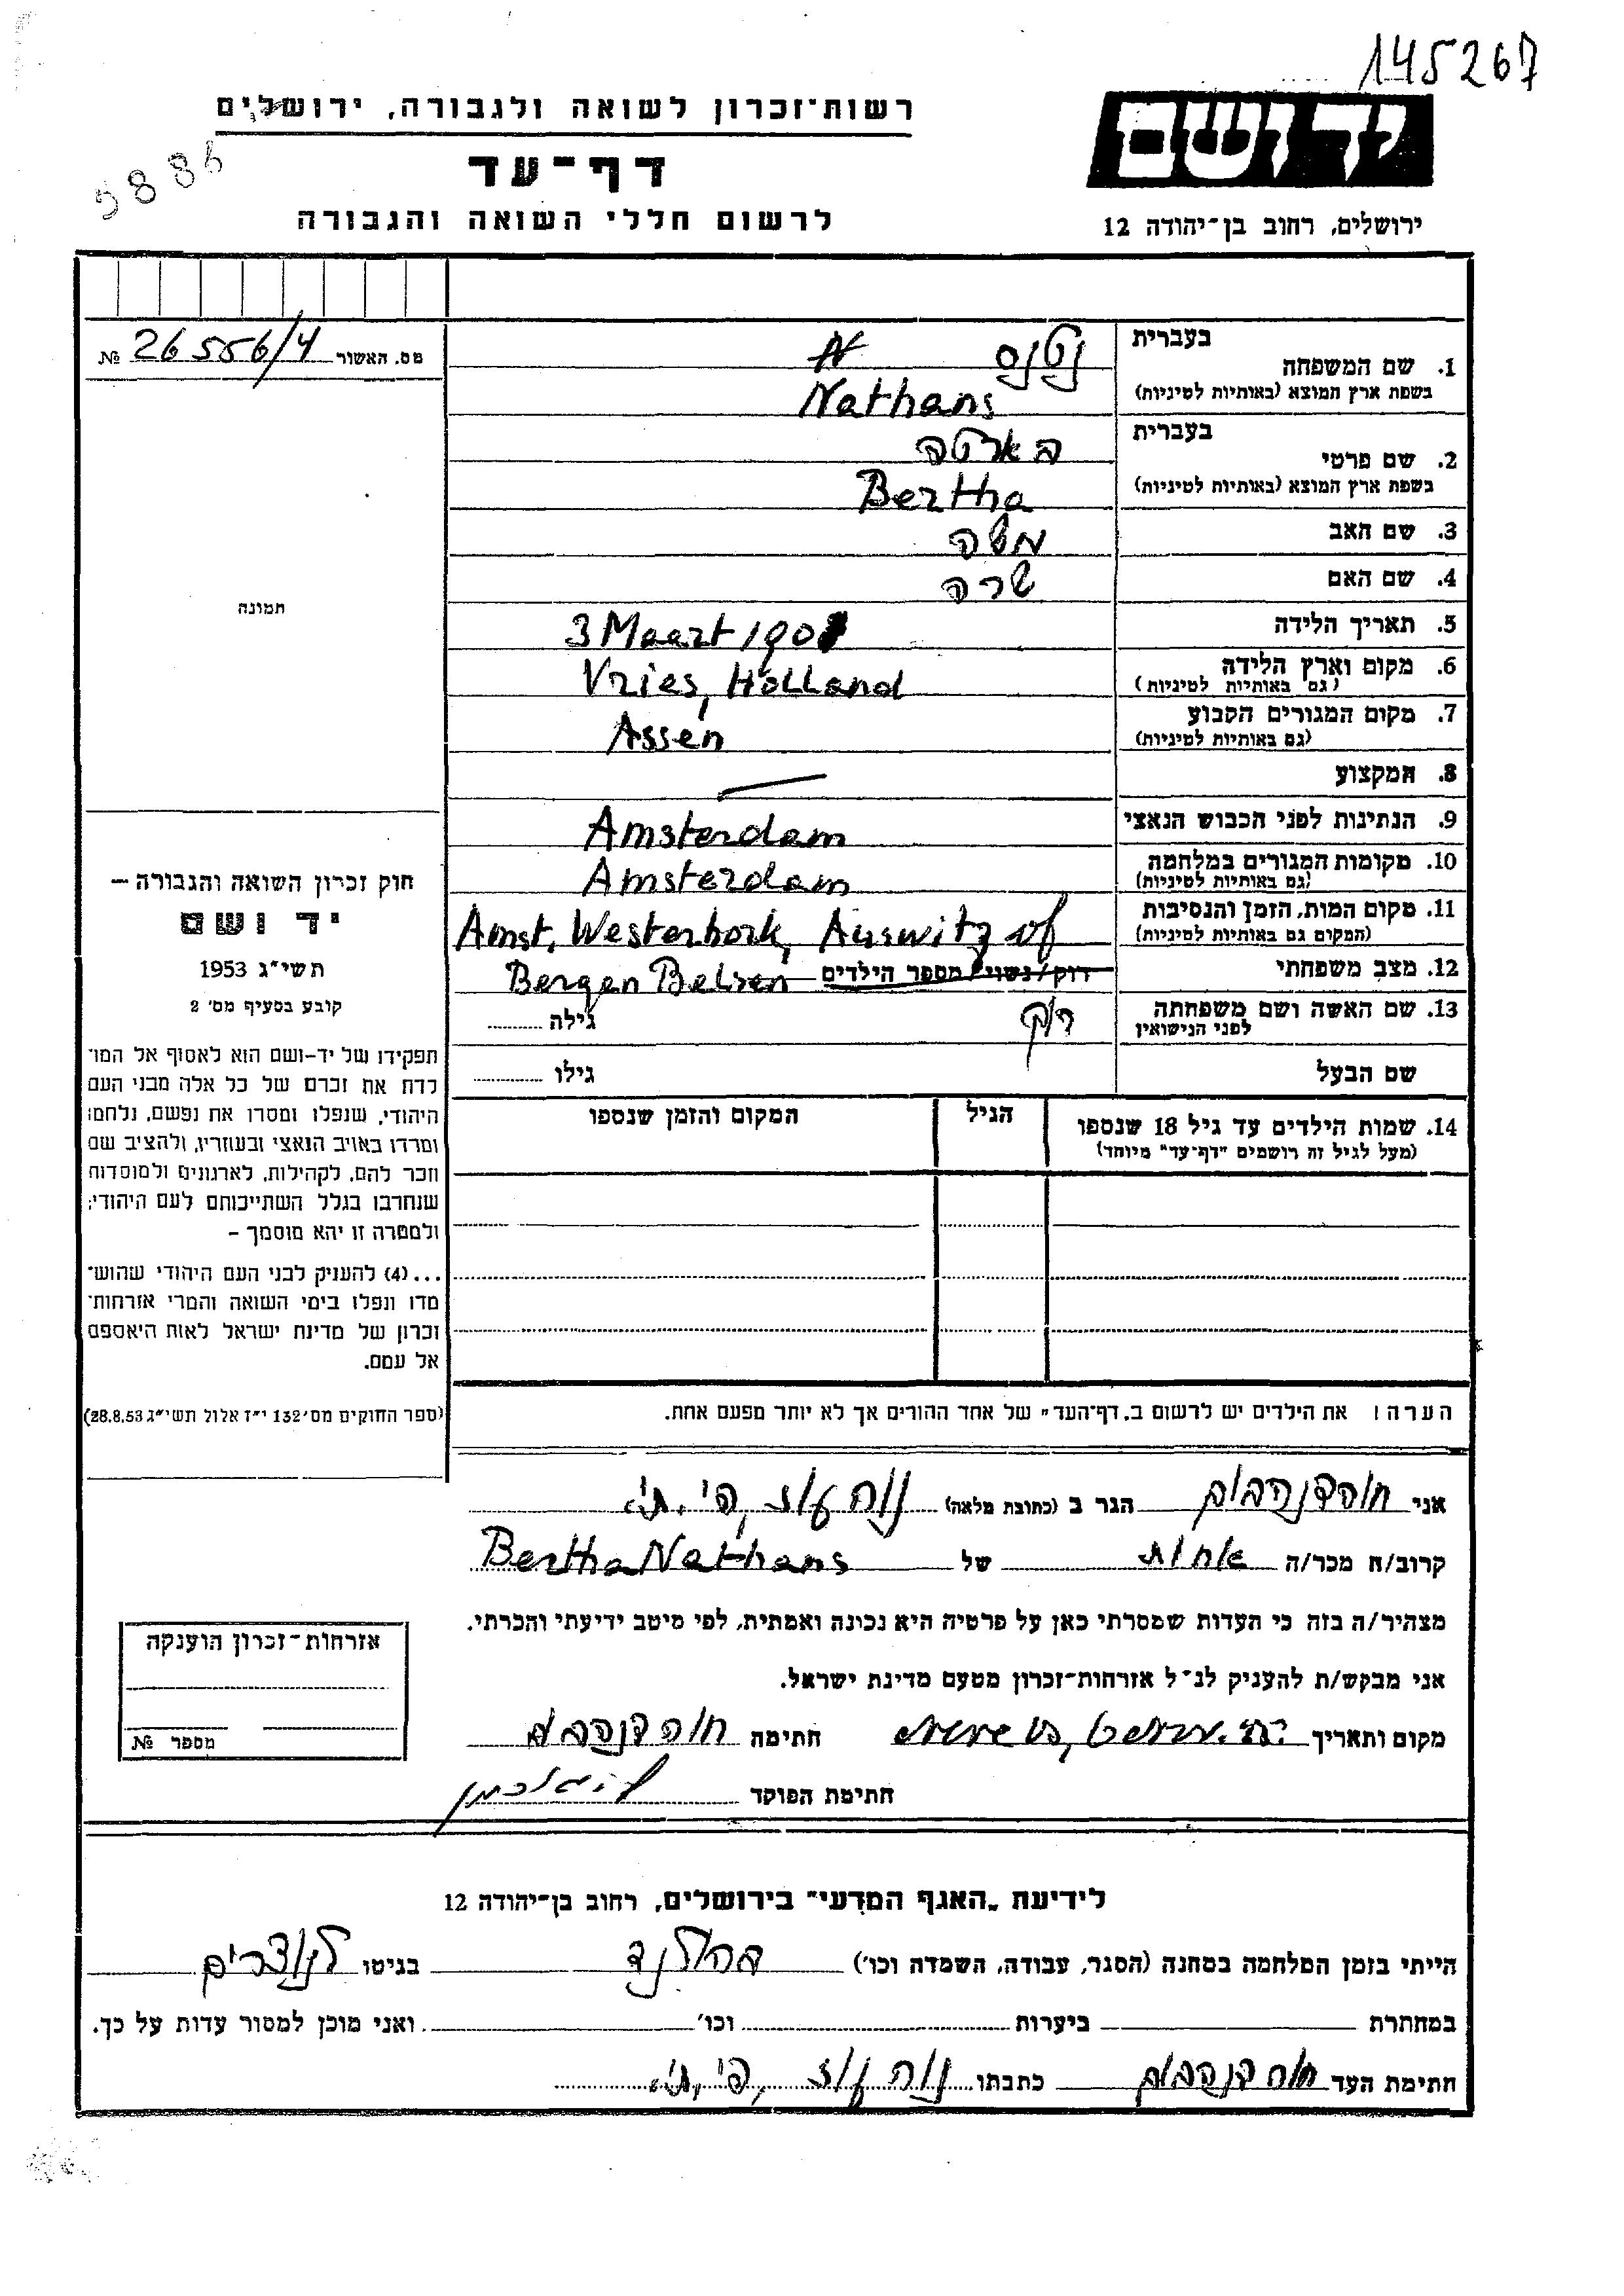 145267
רשות־זכרון לשואה ולגבורה, ירושלים
דף־עד
לרשום חללי השואה והגבורה
5886
יד ושם
ירושלים, רחוב בן־יהודה 12
מס. האשור 26556/4 №
בעברית
1. שם המשפחה נטנס
בשפת ארץ המוצא (באותיות לטיניות) Nathans
בעברית
2. שם פרטי בארטה
בשפת ארץ המוצא (באותיות לטיניות) Bertha
3. שם האב משה
4. שם האם שרה
5. תאריך הלידה 3 Maart 190
6. מקום וארץ הלידה Vries, Holland
(גם באותיות לטיניות)
7. מקום המגורים הקבוע Assen
(גם באותיות לטיניות)
8. המקצוע —
9. הנתינות לפני הכבוש הנאצי Amsterdam
10. מקומות המגורים במלחמה Amsterdam
(גם באותיות לטיניות)
11. מקום המות, הזמן והנסיבות Amst, Westerbork, Auswitz of
(המקום גם באותיות לטיניות)
12. מצב משפחתי רוק/נשוי/מספר הילדים Bergen Belsen
13. שם האשה ושם משפחתה רוק גילה
לפני הנישואין
שם הבעל גילו
14. שמות הילדים עד גיל 18 שנספו הגיל המקום והזמן שנספו
(מעל לגיל זה רושמים "דף־עד" מיוחד)
תמונה
חוק זכרון השואה והגבורה —
יד ושם
תשי״ג 1953
קובע בסעיף מס׳ 2
תפקידו של יד-ושם הוא לאסוף אל המו־
לדת את זכרם של כל אלה מבני העם
היהודי, שנפלו ומסרו את נפשם, נלחמו
ומרדו באויב הנאצי ובעוזריו, ולהציב שם
וזכר להם, לקהילות, לארגונים ולמוסדות
שנחרבו בגלל השתייכותם לעם היהודי;
ולמטרה זו יהא מוסמך –
...(4) להעניק לבני העם היהודי שהוש־
מדו ונפלו בימי השואה והמרי אזרחות־
זכרון של מדינת ישראל לאות היאספם
אל עמם.
(ספר החוקים מס׳ 132 י״ז אלול תשי״ג 28.8.53)
הערה: את הילדים יש לרשום ב„דף־העד" של אחד ההורים אך לא יותר מפעם אחת.
אני הגר ב (כתובת מלאה)
קרוב/ה מכר/ה אחות של Bertha Nathans
מצהיר/ה בזה כי העדות שמסרתי כאן על פרטיה היא נכונה ואמתית, לפי מיטב ידיעתי והכרתי.
אני מבקש/ת להעניק לנ״ל אזרחות־זכרון מטעם מדינת ישראל.
מקום ותאריך חתימה
חתימת הפוקד
אזרחות־זכרון הוענקה
מספר №
לידיעת „האגף המדעי" בירושלים, רחוב בן־יהודה 12
הייתי בזמן המלחמה במחנה (הסגר, עבודה, השמדה וכו׳) בהולנד בגיטו
במחתרת ביערות וכו׳ ואני מוכן למסור עדות על כך.
חתימת העד כתבתו